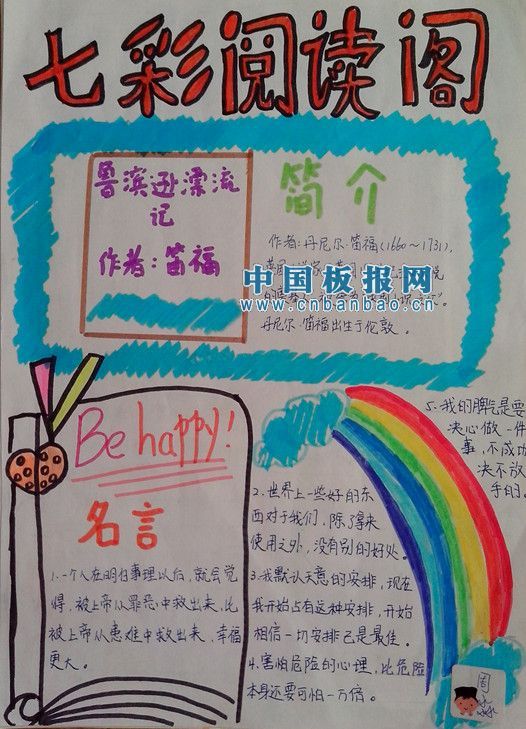 七彩阅读阁
鲁滨逊漂流
记
作者:笛福
简介
作者:丹尼尔·笛福(1660~1731),
丹尼尔·笛福出生于伦敦。
中国板报网
www.cnbanbao.cn
Be happy!
名言
1.一个人在明白事理以后,就会觉
得,被上帝从罪恶中救出来,比
被上帝从患难中救出来,幸福
更大。
2.世界上一些好的东
西对于我们,除了拿来
使用之外,没有别的好处。
3.我默认天意的安排,现在
我开始占有这种安排,开始
相信一切安排已是最佳。
4.害怕危险的心理,比危险
本身还要可怕一万倍。
5.我的脾气是要
决心做一件
事,不成功
决不放
手的